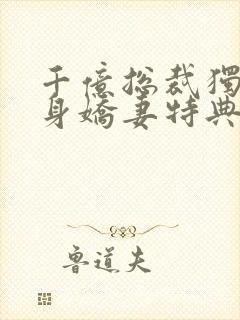 千億總裁獨
身嬌妻特典
魯道夫